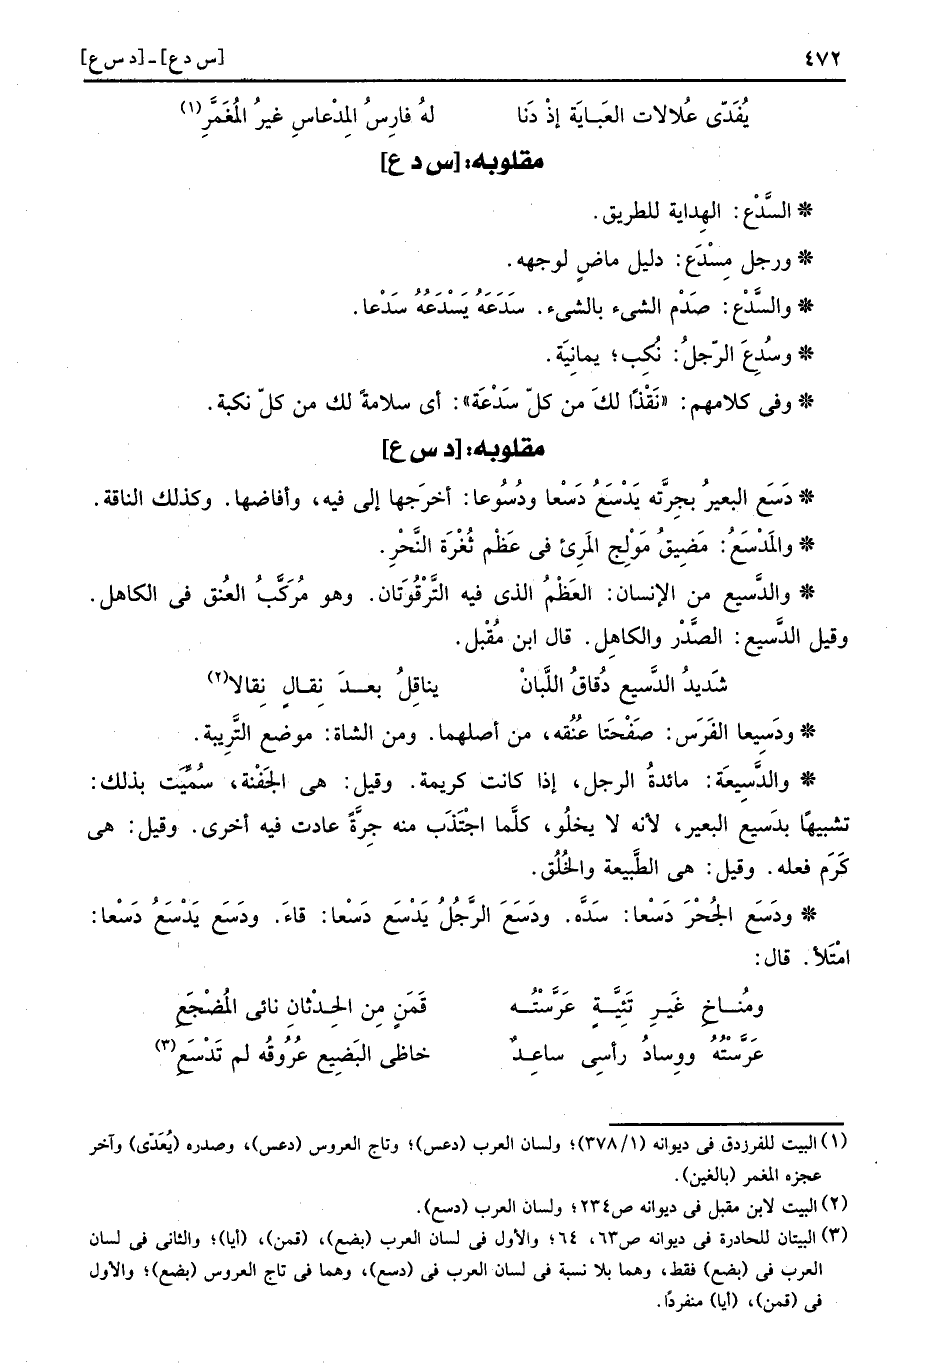 ٤٧٢ [س د ع] ـ [د س ع]
يُفَدّى عُلالات العَبـايَة إذْ دَنَا لهُ فارِسُ المِدْعاسِ غيرُ المُغَمَّرِ(١)
مقلوبه: [س د ع]
* السَّدْع: الهِداية للطريق.
* ورجل مِسْدَع: دليل ماضٍ لوجهه.
* والسَّدْع: صَدْم الشىء بالشىء. سَدَعَهُ يَسْدَعهُ سَدْعا.
* وسُدِعَ الرّجلُ: نُكِب؛ يمانيَة.
* وفى كلامهم: «نَقْذًا لكَ من كلّ سَدْعَة»: أى سلامةً لك من كلّ نكبة.
مقلوبه: [د س ع]
* دَسَع البعيرُ بجِرَّته يَدْسَعُ دَسْعا ودُسُوعا: أخرَجها إلى فيه، وأفاضها. وكذلك الناقة.
* والمَدْسَعُ: مَضيِقُ مَوْلِج المَرِئ فى عَظْم ثُغْرَة النَّحْرِ.
* والدَّسيع من الإنسان: العَظْمُ الذى فيه التَّرْقُوَتان. وهو مُرَكَّبُ العنق فى الكاهل.
وقيل الدَّسيع: الصَّدْر والكاهِل. قال ابن مُقْبل.
شَديدُ الدَّسيع دُقاقُ اللَّبانْ يناقِلُ بعــدَ نِقـالٍ نِقالا(٢)
* ودَسِيعا الفَرَس: صَفْحَتَا عُنُقه، من أصلهما. ومن الشاة: موضع التَّرِيبة.
* والدَّسِيعَة: مائدةُ الرجل، إذا كانت كريمة. وقيل: هى الجَفْنة، سُمِّيَت بذلك:
تشبيهًا بدَسيع البعير، لأنه لا يخلُو، كلَّما اجْتَذَب منه جِرَّةً عادت فيه أخرى. وقيل: هى
كَرَم فعله. وقيل: هى الطَّبيعة والخُلُق.
* ودَسَع الجُحْرَ دَسْعا: سَدَّه. ودَسَعَ الرَّجُلُ يَدْسَع دَسْعا: قاءَ. ودَسَع يَدْسَعُ دَسْعا:
امْتَلأ. قال:
ومُنــاخِ غَيـرِ تَئِيَّـةٍ عَرَّسْتُــه قَمَنٍ مِن الحِدْثانِ نائى المُضْجَعِ
عَرَّسْتُهُ ووِسادُ رأسِى ساعِـدٌ خاظى البَضيعِ عُرُوقُه لم تَدْسَعِ(٣)
(١) البيت للفرزدق فى ديوانه (١/ ٣٧٨)؛ ولسان العرب (دعس)؛ وتاج العروس (دعس)، وصدره (يُعَدّى) وآخر
عجزه المغمر (بالغين).
(٢) البيت لابن مقبل فى ديوانه ص٢٣٤؛ ولسان العرب (دسع).
(٣) البيتان للحادرة فى ديوانه ص٦٣، ٦٤؛ والأول فى لسان العرب (بضع)، (قمن)، (أيا)؛ والثانى فى لسان
العرب فى (بضع) فقط، وهما بلا نسبة فى لسان العرب فى (دسع)، وهما فى تاج العروس (بضع)؛ والأول
فى (قمن)، (أيا) منفردًا.